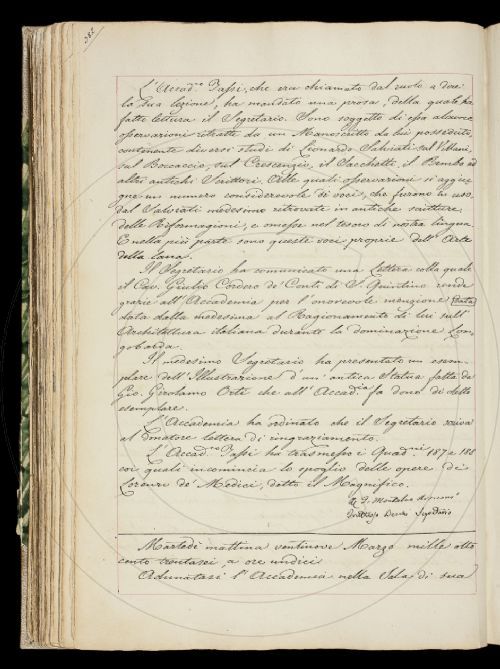 382
L'Accad.co Tassi, che era chiamato dal ruolo a dire
la sua lezione, ha mandato una prosa, della quale ha
fatto lettura il Segretario. Sono soggetto di essa alcune
osservazioni estratte da un Manoscritto da lui posseduto,
contenente diversi studi di Lionardo Salviati sul Villani,
sul Boccaccio, sul Crescenzio, il Sacchetti, il Bembo ed
altri antichi Scrittori. Alle quali osservazioni si aggiun
gue un numero considerevole di voci, che furono in uso,
dal Salviati medesimo ritrovate in antiche scritture
delle Riformagioni, e omesse nel tesoro di nostra lingua.
E nella più parte sono queste voci proprie dell'Arte
della lana.
Il Segretario ha comunicato una Lettera colla quale
il Cav. Giulio Cordero de' Conti di S. Quintino rende
grazie all'Accademia per l'onorevole menzione
data dalla medesima al Ragionamento di lui sull'
Architettura italiana durante la dominazione Lon
gobarda.
Il medesimo Segretario ha presentato un esem
plare dell'Illustrazione d'un'antica Statua fatta da
Gio. Girolamo Orti che all'Accad.ia fa dono di detto
esemplare.
L'Accademia ha ordinato che il Segretario scriva
al Donatore lettera di ringraziamento.
L'Accad.co Tassi ha trasmesso i Quad.ni 187 e 188
coi quali incomincia lo spoglio delle opere di
Lorenzo de' Medici, detto il Magnifico.
Segretario
Martedì mattina ventinove Marzo mille otto
cento trentasei, a ore undici
Adunatasi l'Accademia nella Sala di sua